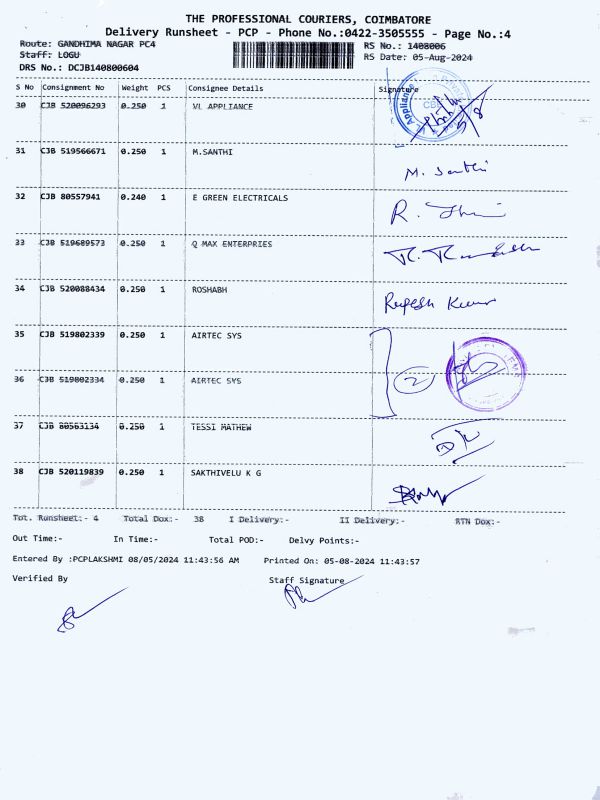 THE PROFESSIONAL COURIERS, COIMBATORE
Delivery Runsheet - PCP - Phone No.:0422-3505555 - Page No.:4
Route: GANDHIMA NAGAR PC4 RS No.: 1408006
Staff: LOGU RS Date: 05-Aug-2024
DRS No.: DCJB140800604
S No Consignment No Weight PCS Consignee Details Signature
30 CJB 520096293 0.250 1 VL APPLIANCE
31 CJB 519566671 0.250 1 M.SANTHI
M. Santhi
32 CJB 80557941 0.240 1 E GREEN ELECTRICALS
33 CJB 519689573 0.250 1 Q MAX ENTERPRIES
34 CJB 520088434 0.250 1 ROSHABH
Rupesh Kumar
35 CJB 519802339 0.250 1 AIRTEC SYS
36 CJB 519802334 0.250 1 AIRTEC SYS
2
37 CJB 80563134 0.250 1 TESSI MATHEW
38 CJB 520119839 0.250 1 SAKTHIVELU K G
Tot. Runsheet:- 4 Total Dox:- 38 I Delivery:- II Delivery:- RTN Dox:-
Out Time:- In Time:- Total POD:- Delvy Points:-
Entered By :PCPLAKSHMI 08/05/2024 11:43:56 AM Printed On: 05-08-2024 11:43:57
Verified By Staff Signature